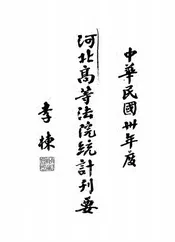 中華民國卅年度
河北高等法院統計刊要
李棟